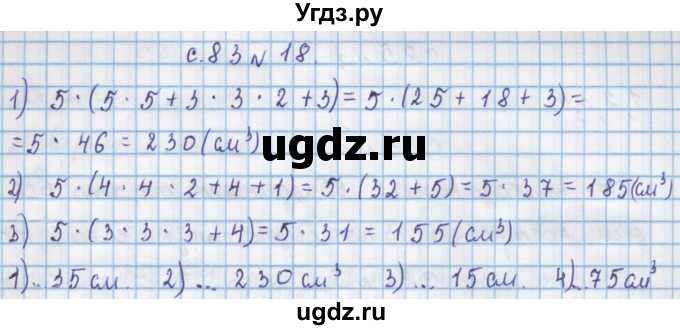 Угдз.ру
с.83 № 18.
1) 5·(5·5+3·3·2+3)=5·(25+18+3)=
=5·46=230(см³)
ugdz.ru
2) 5·(4·4·2+4+1)=5·(32+5)=5·37=185(см³)
3) 5·(3·3·3+4)=5·31=155(см³)
1)..35см. 2)... 230см³ 3)... 15см. 4)...75см³